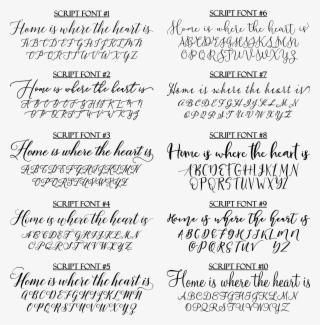 SCRIPT FONT #1
Home is where the heart is
ABCDEFGHIJKLMN
OPQRSTUVWXYZ
SCRIPT FONT #2
Home is where the heart is
ABCDEFGHIJKLMN
OPQRSTUVWXYZ
SCRIPT FONT #3
Home is where the heart is
ABCDEFGHIJKLMN
OPQRSTUVWXYZ
SCRIPT FONT #4
Home is where the heart is
ABCDEFGHIJKLMN
OPQRSTUVWXYZ
SCRIPT FONT #5
Home is where the heart is
ABCDEFGHIJKLMN
OPQRSTUVWXYZ
SCRIPT FONT #6
Home is where the heart is
ABCDEFGHIJKLMN
OPQRSTUVWXYZ
SCRIPT FONT #7
Home is where the heart is
ABCDEFGHIJKLMN
OPQRSTUVWXYZ
SCRIPT FONT #8
Home is where the heart is
ABCDEFGHIJKLMN
OPQRSTUVWXYZ
SCRIPT FONT #9
Home is where the heart is
ABCDEFGHIJKLMN
OPQRSTUVW YZ
SCRIPT FONT #10
Home is where the heart is
ABCDEFGHIJKLMN
OPQRSTUVWXYZ